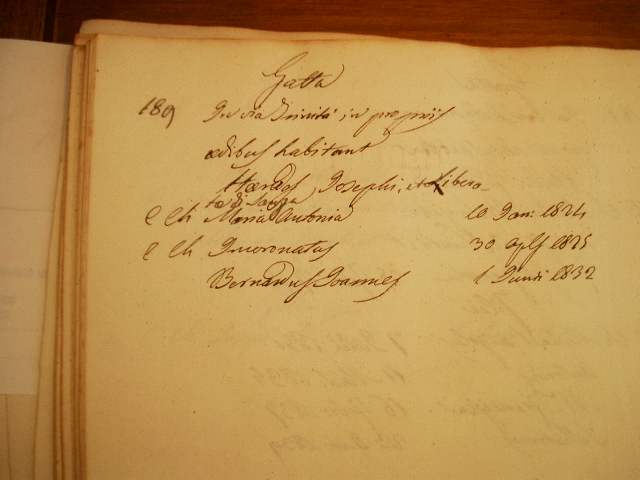 Gatta
189 In via Trinità, in propriis
ædibus habitant
Hæredes Josephi, et Libera-
tæ di Sanza
C Ch Maria Antonia 10 Jan: 1824
C Ch Incoronatus 30 Aplis 1825
Bernardus Joannes 1 Junii 1832